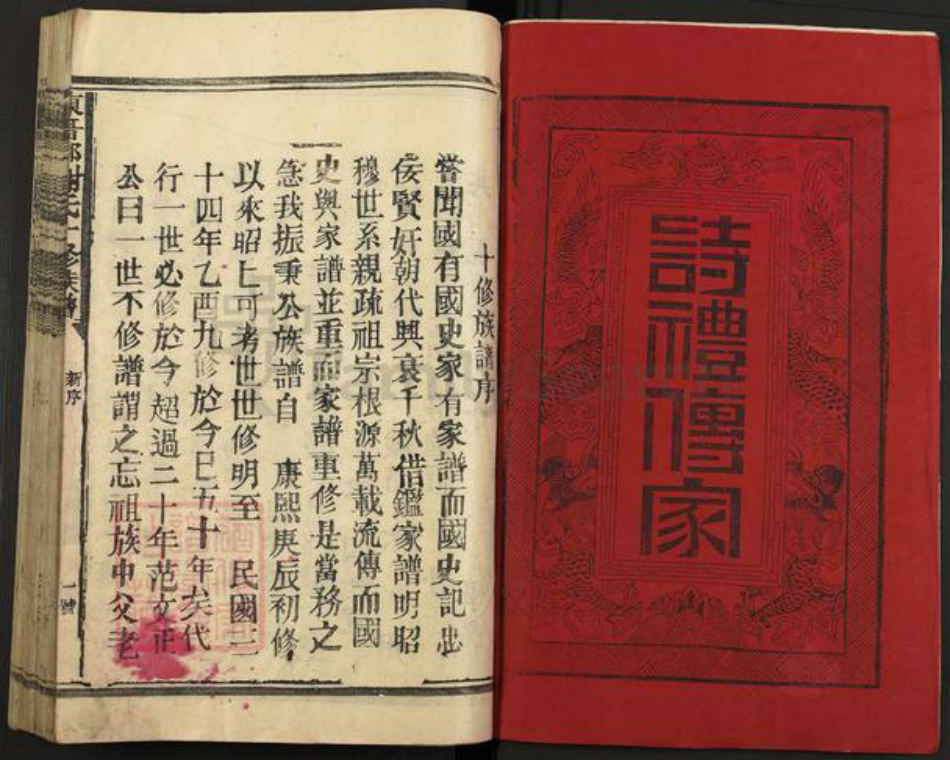 詩禮傳家
十修族譜序
嘗聞國有國史家有家譜而國史記忠
佞賢奸朝代興衰千秋借鑑家譜明昭
穆世系親疏祖宗根源萬載流傳而國
史與家譜並重而家譜重修是當務之
急我振秉公族譜自 康熙庚辰初修
以來昭上可考世世修明至 民國三
十四年乙酉九修於今已五十年矣代
行一世必修於今超過二十年范文正
公曰一世不修譜謂之忘祖族中父老
謝氏十修族譜
新序
一號